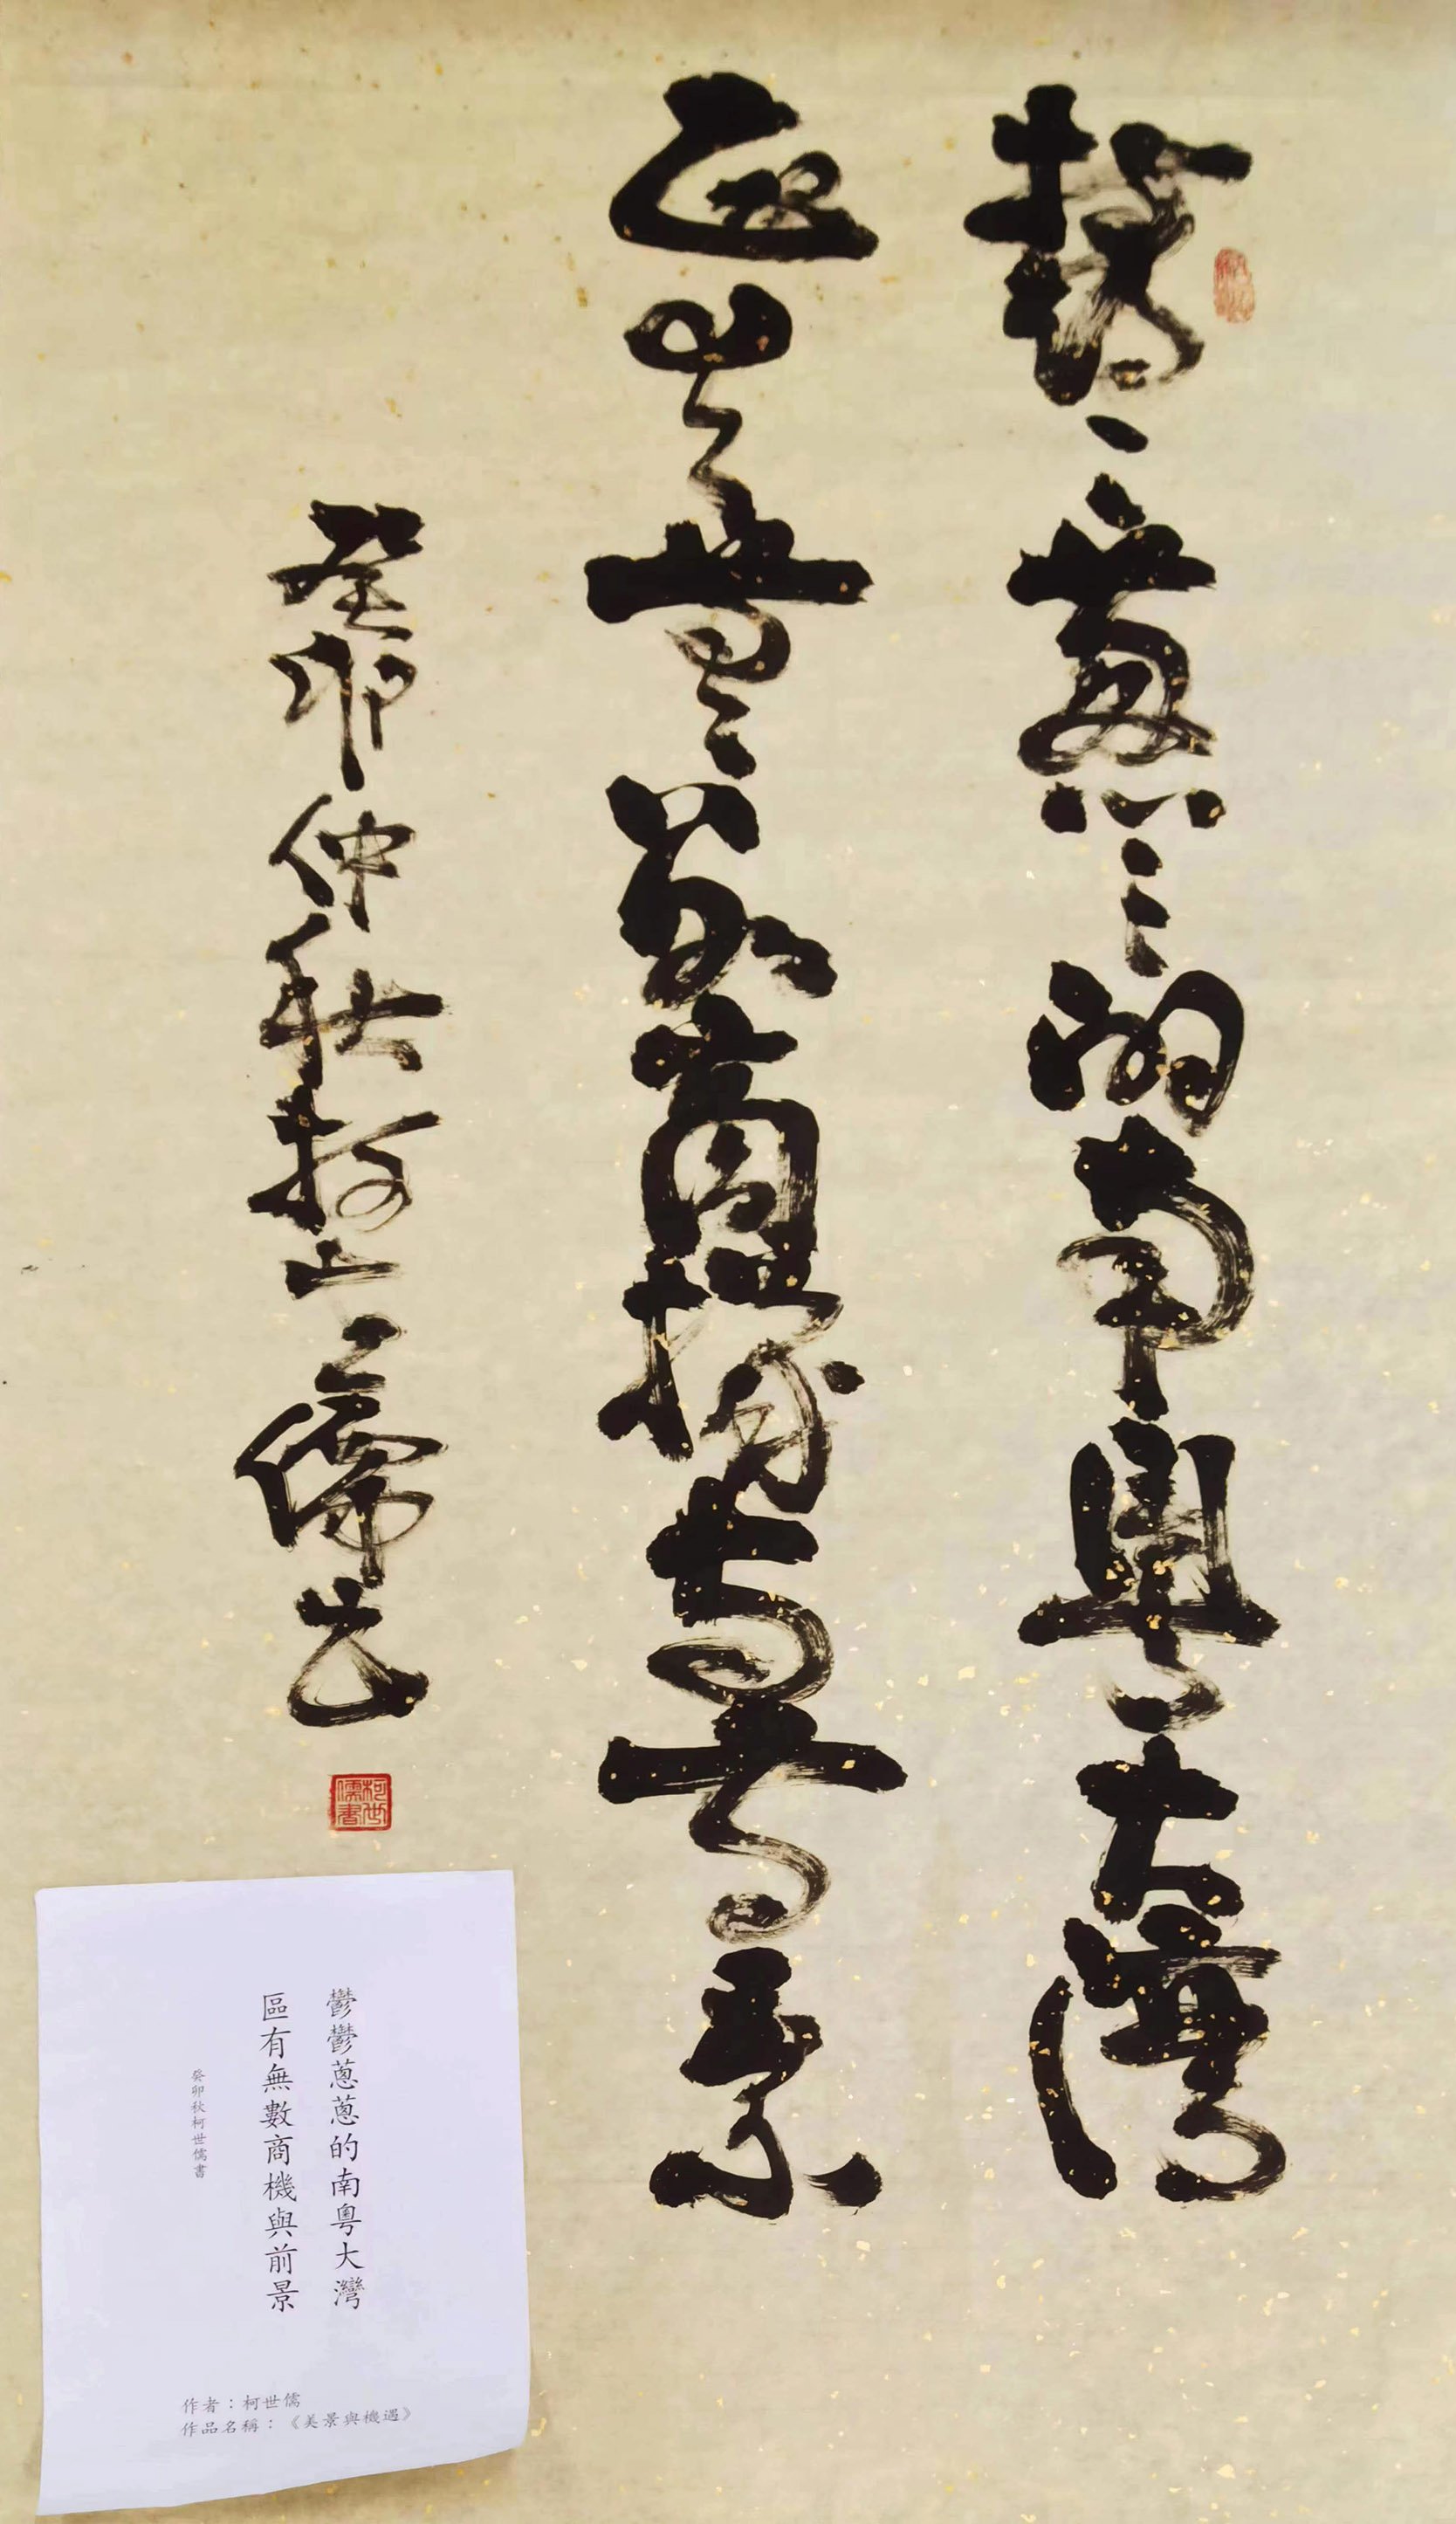 鬱〻蔥〻的南粵大灣
區有無數商機與前景
癸卯仲秋柯世儒書
柯世儒書
鬱鬱蔥蔥的南粵大灣
區有無數商機與前景
癸卯秋柯世儒書
作者：柯世儒
作品名稱：《美景與機遇》